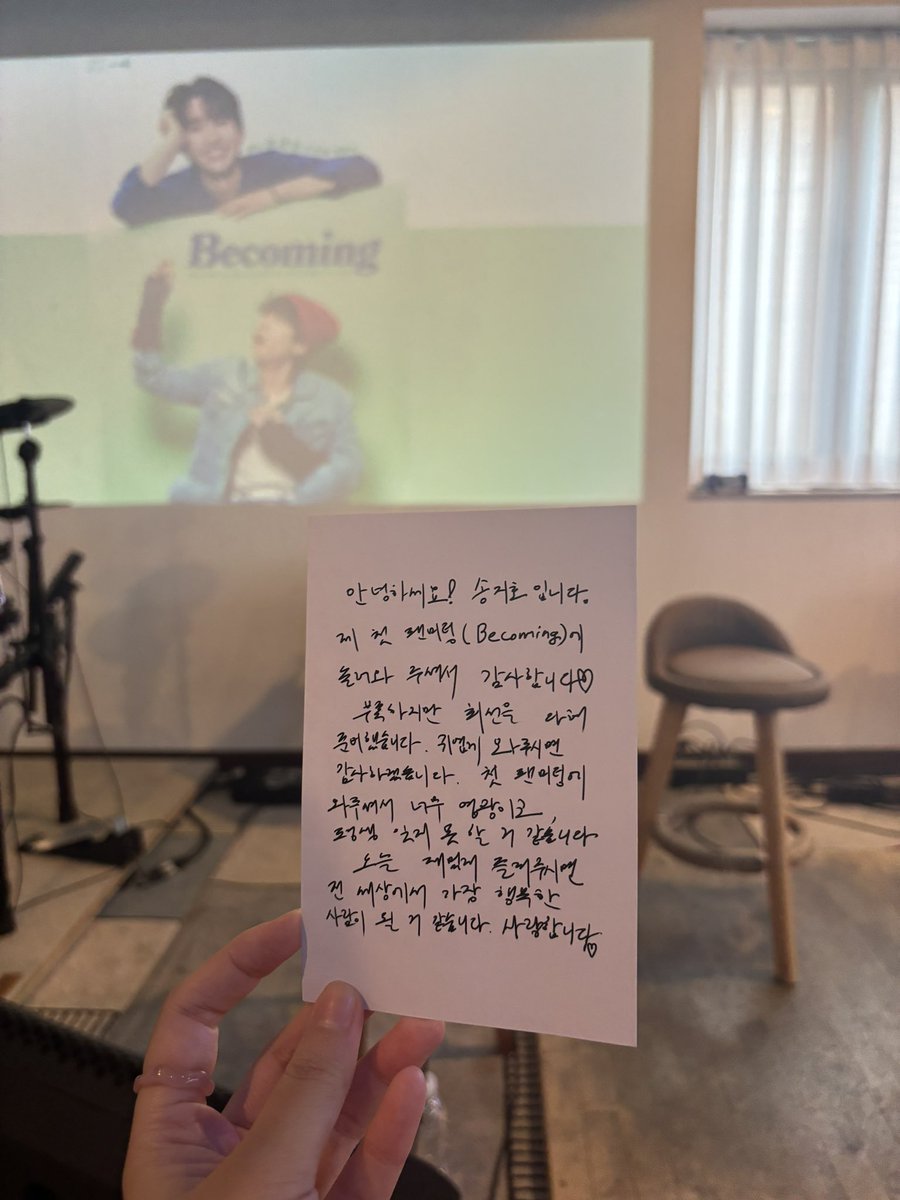 Becoming
안녕하세요! 송지호입니다.
제 첫 팬미팅(Becoming)에
놀러와 주셔서 감사합니다♡
부족하지만 최선을 다해
준비했습니다. 귀엽게 봐주시면
감사하겠습니다. 첫 팬미팅에
와주셔서 너무 영광이고,
평생 잊지 못 할 거 같습니다
오늘 재밌게 즐겨주시면
전 세상에서 가장 행복한
사람이 될 거 같습니다. 사랑합니다♡